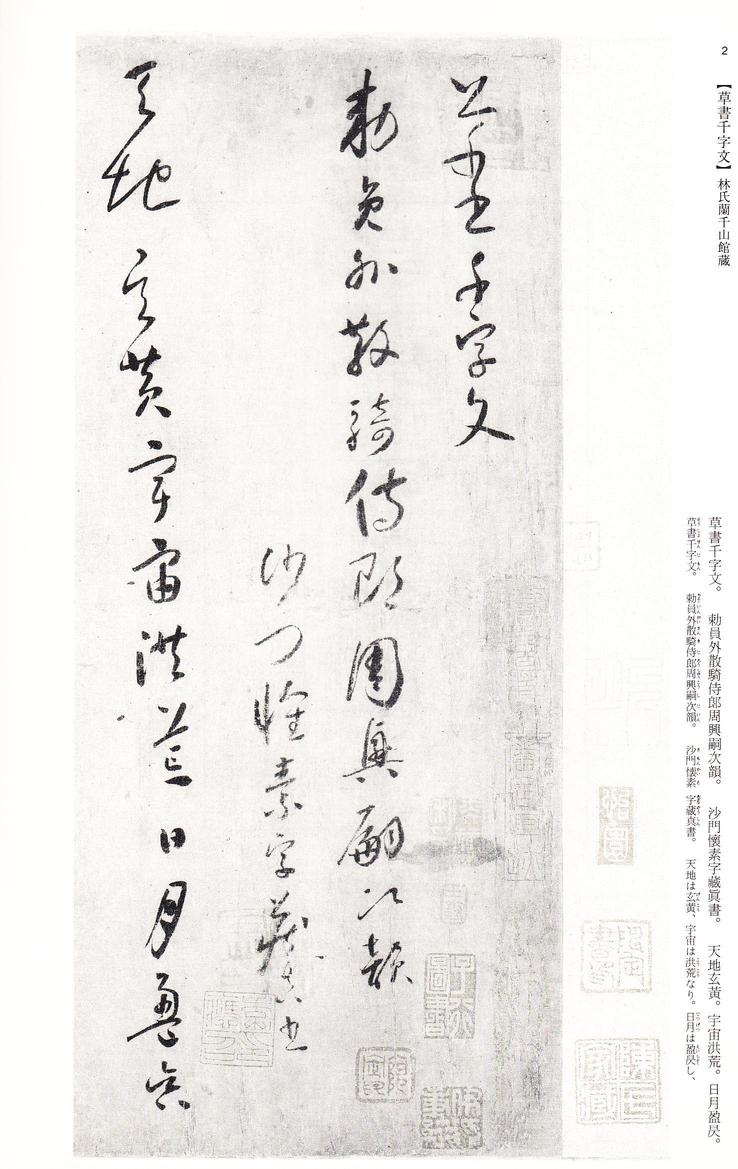 2
【草書千字文】林氏蘭千山館蔵
草書千字文。　勅員外散騎侍郎周興嗣次韻。　沙門懷素字藏眞書。　天地玄黄。宇宙洪荒。日月盈昃。
草書千字文。　勅員外散騎侍郎周興嗣次韻。　沙門懐素　字蔵真書。　天地は玄黄、宇宙は洪荒なり。日月は盈昃し、
草書千字文
勅員外散騎侍郎周興嗣次韻
沙門懷素字藏真書
天地玄黄宇宙洪荒日月盈昃